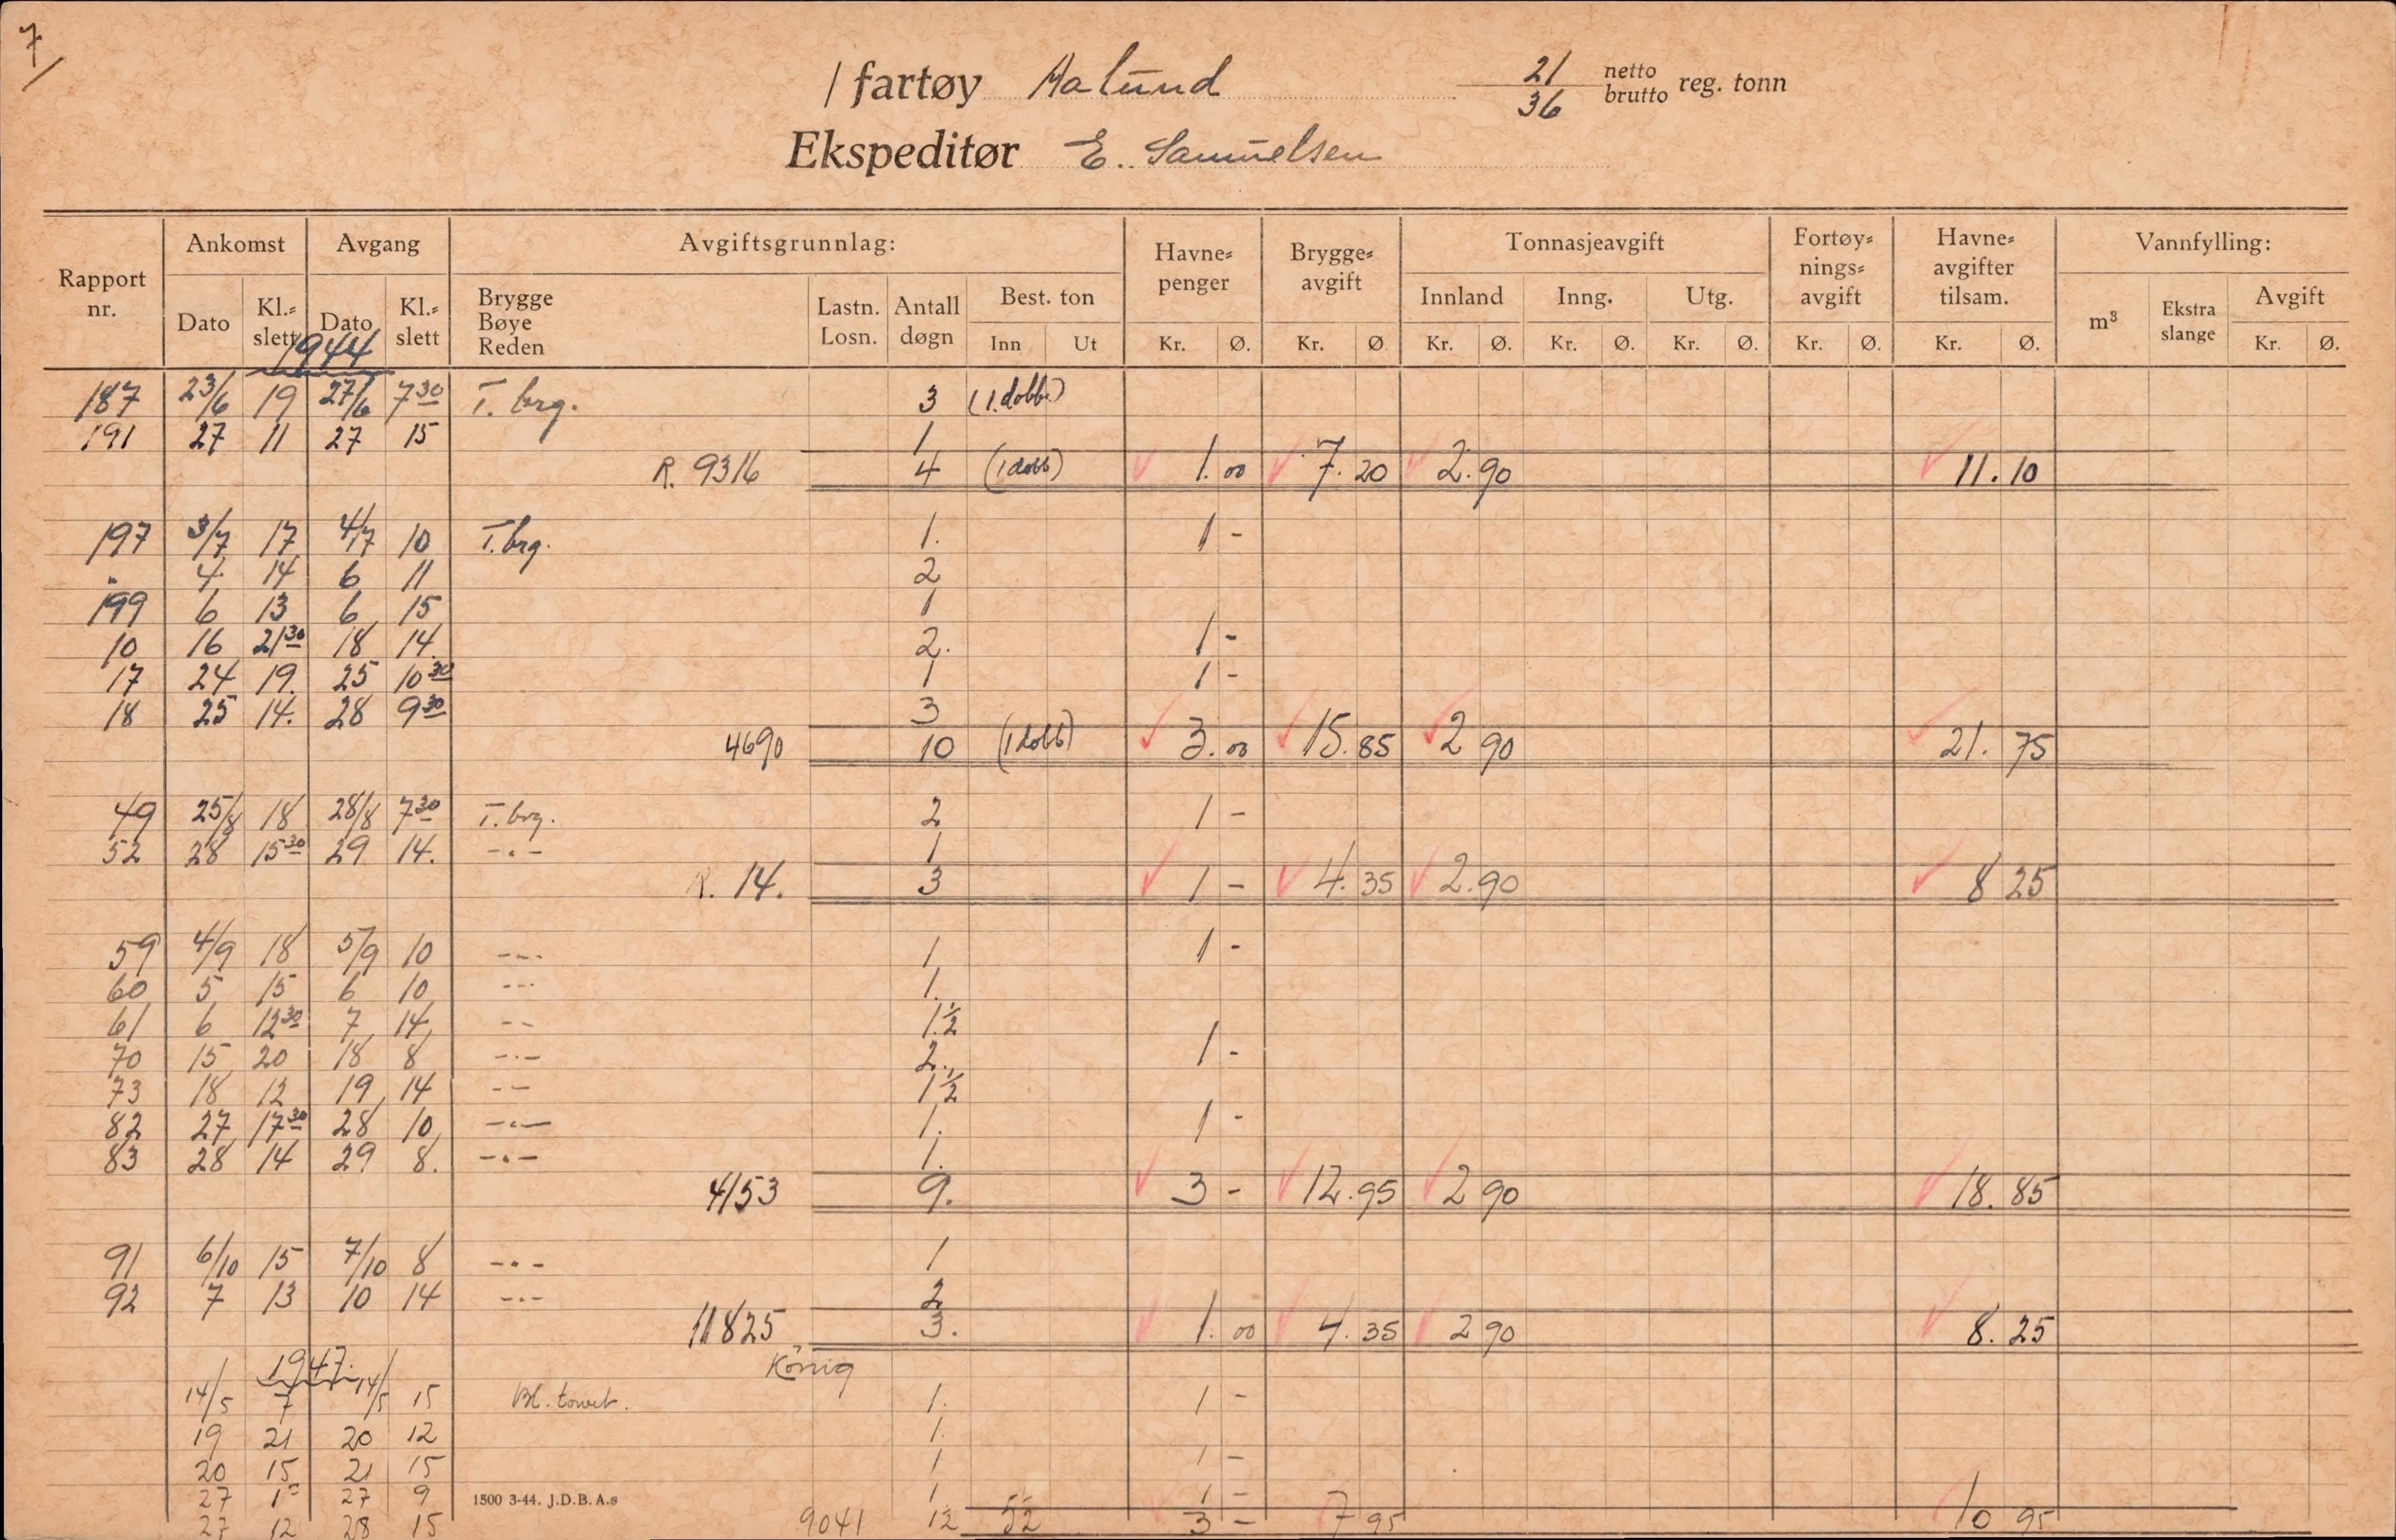 7/
/ fartøy Aalund 21/36 netto brutto reg. tonn
Ekspeditør E. Samuelsen
Rapport nr. Ankomst Avgang Avgiftsgrunnlag: Havne=penger Brygge=avgift Tonnasjeavgift Fortøy=nings=avgift Havne=avgifter tilsam. Vannfylling:
Dato Kl.=slett Dato Kl.=slett Brygge Bøye Reden Lastn. Losn. Antall døgn Best. ton Innland Inng. Utg. m³ Ekstra slange Avgift
Inn Ut Kr. Ø. Kr. Ø Kr. Ø. Kr. Ø. Kr. Ø. Kr. Ø. Kr. Ø. Kr. Ø.
1944
187 23/6 19 27/6 7 30 T. brg. 3 (1 dobb.)
191 27 11 27 15 1
R. 9316 4 (1 dobb) 1.00 7.20 2.90 11.10
197 3/7 17 4/7 10 T. brg. 1. 1 -
" 4 14 6 11 2
199 6 13 6 15 1
10 16 21 30 18 14. 2. 1 -
17 24 19. 25 10 30 1 1 -
18 25 14. 28 9 30 3
4690 10 (1 dobb) 3.00 15.85 2 90 21. 75
49 25/8 18 28/8 7 30 T. brg. 2 1 -
52 28 15 30 29 14. -"- 1
R. 14. 3 1 - 4.35 2.90 8 25
59 4/9 18 5/9 10 -"- 1 1 -
60 5 15 6 10 -"- 1.
61 6 12 30 7 14 -"- 1.½
70 15 20 18 8 -"- 2. 1 -
73 18 12 19 14 -"- 1½
82 27 17 30 28 10 -"- 1. 1 -
83 28 14 29 8. -"- 1.
4153 9. 3 - 12.95 2 90 18. 85
91 6/10 15 7/10 8 -"- 1
92 7 13 10 14 -"- 2
11825 3. 1. 00 4. 35 2 90 8. 25
1947. König
14/5 7 14/5 15 1. 1 -
19 21 20 12 1.
20 15 21 15 1 1 -
27 27 9 1 1 -
1500 3-44. J.D.B. A.s
27 12 28 15 9041 3 - 7 95 10 95